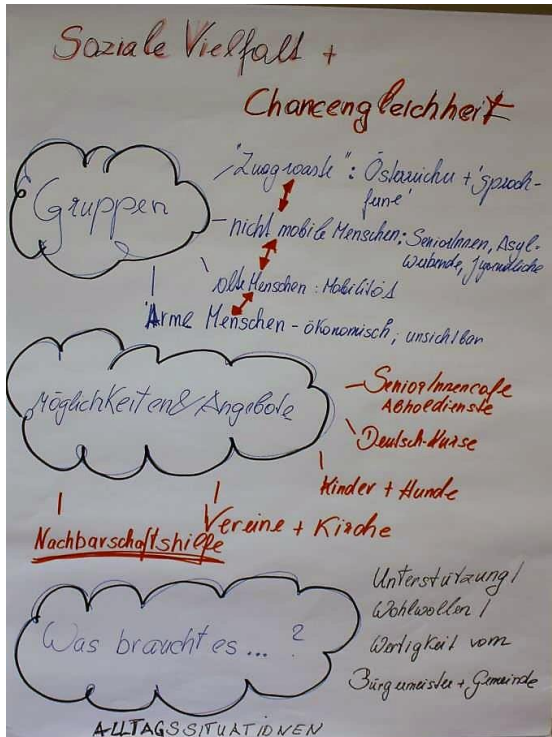 Soziale Vielfalt +
Chancengleichheit
Gruppen
"Zuagroaste": Österreicher + 'sprach-
ferne'
- nicht mobile Menschen: SeniorInnen, Asyl-
werbende, Jugendliche
alte Menschen: Mobilität
Arme Menschen - ökonomisch, unsichtbar
Möglichkeiten & Angebote
- SeniorInnencafe
Abholdienste
Deutsch-Kurse
Kinder + Hunde
Vereine + Kirche
Nachbarschaftshilfe
Was braucht es... ?
Unterstützung /
Wohlwollen /
Wertigkeit vom
Bürgermeister + Gemeinde
ALLTAGSSITUATIONEN